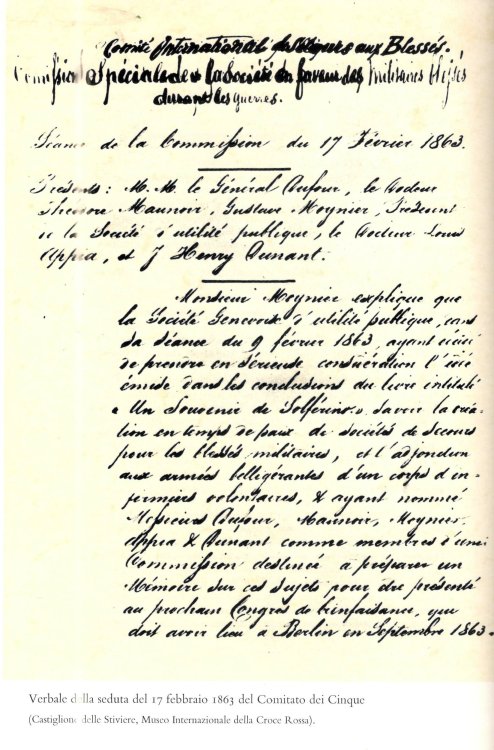 Comité International de Secours aux Blessés.
Commission Spéciale de la Société en faveur des militaires blessés
durant les guerres.
Séance de la Commission du 17 Février 1863.
Présents: M. M. le Général Dufour, le Docteur
Théodore Maunoir, Gustave Moynier, Président
de la Société d'utilité publique, le Docteur Louis
Appia, et J Henry Dunant.
Monsieur Moynier explique que
la Société Genevoise d'utilité publique, dans
sa séance du 9 février 1863, ayant décidé
de prendre en sérieuse considération l'idée
émise dans les conclusions du livre intitulé
« Un Souvenir de Solférino», savoir la créa-
tion en temps de paix de sociétés de secours
pour les blessés militaires, et l'adjonction
aux armées belligérantes d'un corps d'in-
firmiers volontaires, & ayant nommé
Messieurs Dufour, Maunoir, Moynier,
Appia & Dunant comme membres d'une
Commission destinée à préparer un
Mémoire sur ces sujets pour être présenté
au prochain Congrès de bienfaisance, qui
doit avoir lieu à Berlin en Septembre 1863.
Verbale della seduta del 17 febbraio 1863 del Comitato dei Cinque
(Castiglione delle Stiviere, Museo Internazionale della Croce Rossa).